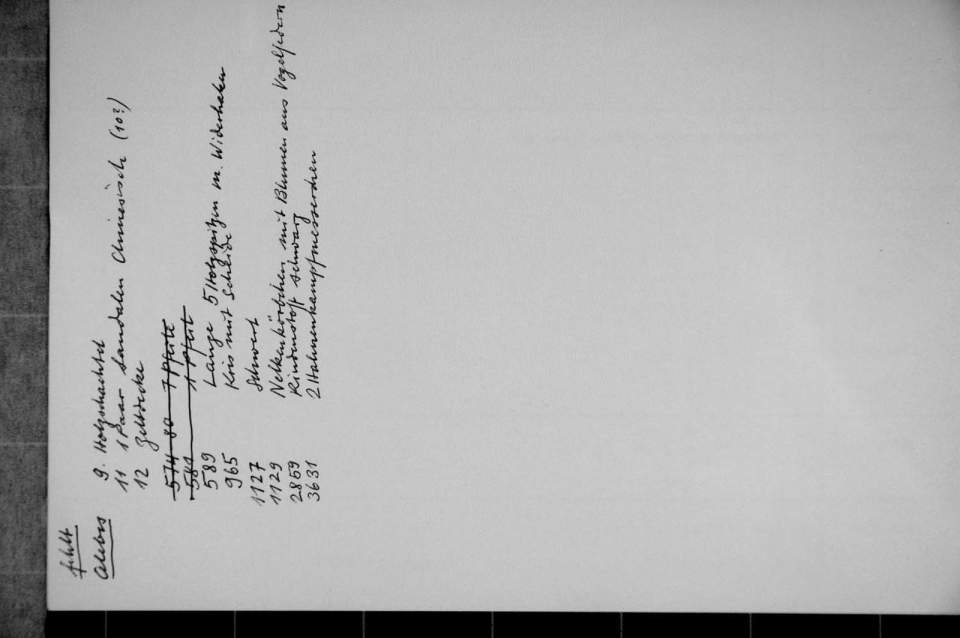 fehlt
Celebes 9. Holzschachtel
11 1 Paar Sandalen Chinesisch (10?)
12 Zeltdecke
574-80 7 Pfeile
581 1 Pfeil
589 Lanze 5 Holzspitzen m. Widerhaken
965 Kris mit Scheide
1127 Schwert
1129 Nelkenkörbchen mit Blumen aus Vogelfedern
2859 Rindenstoff schwarz
3631 2 Hahnenkampfmesserchen